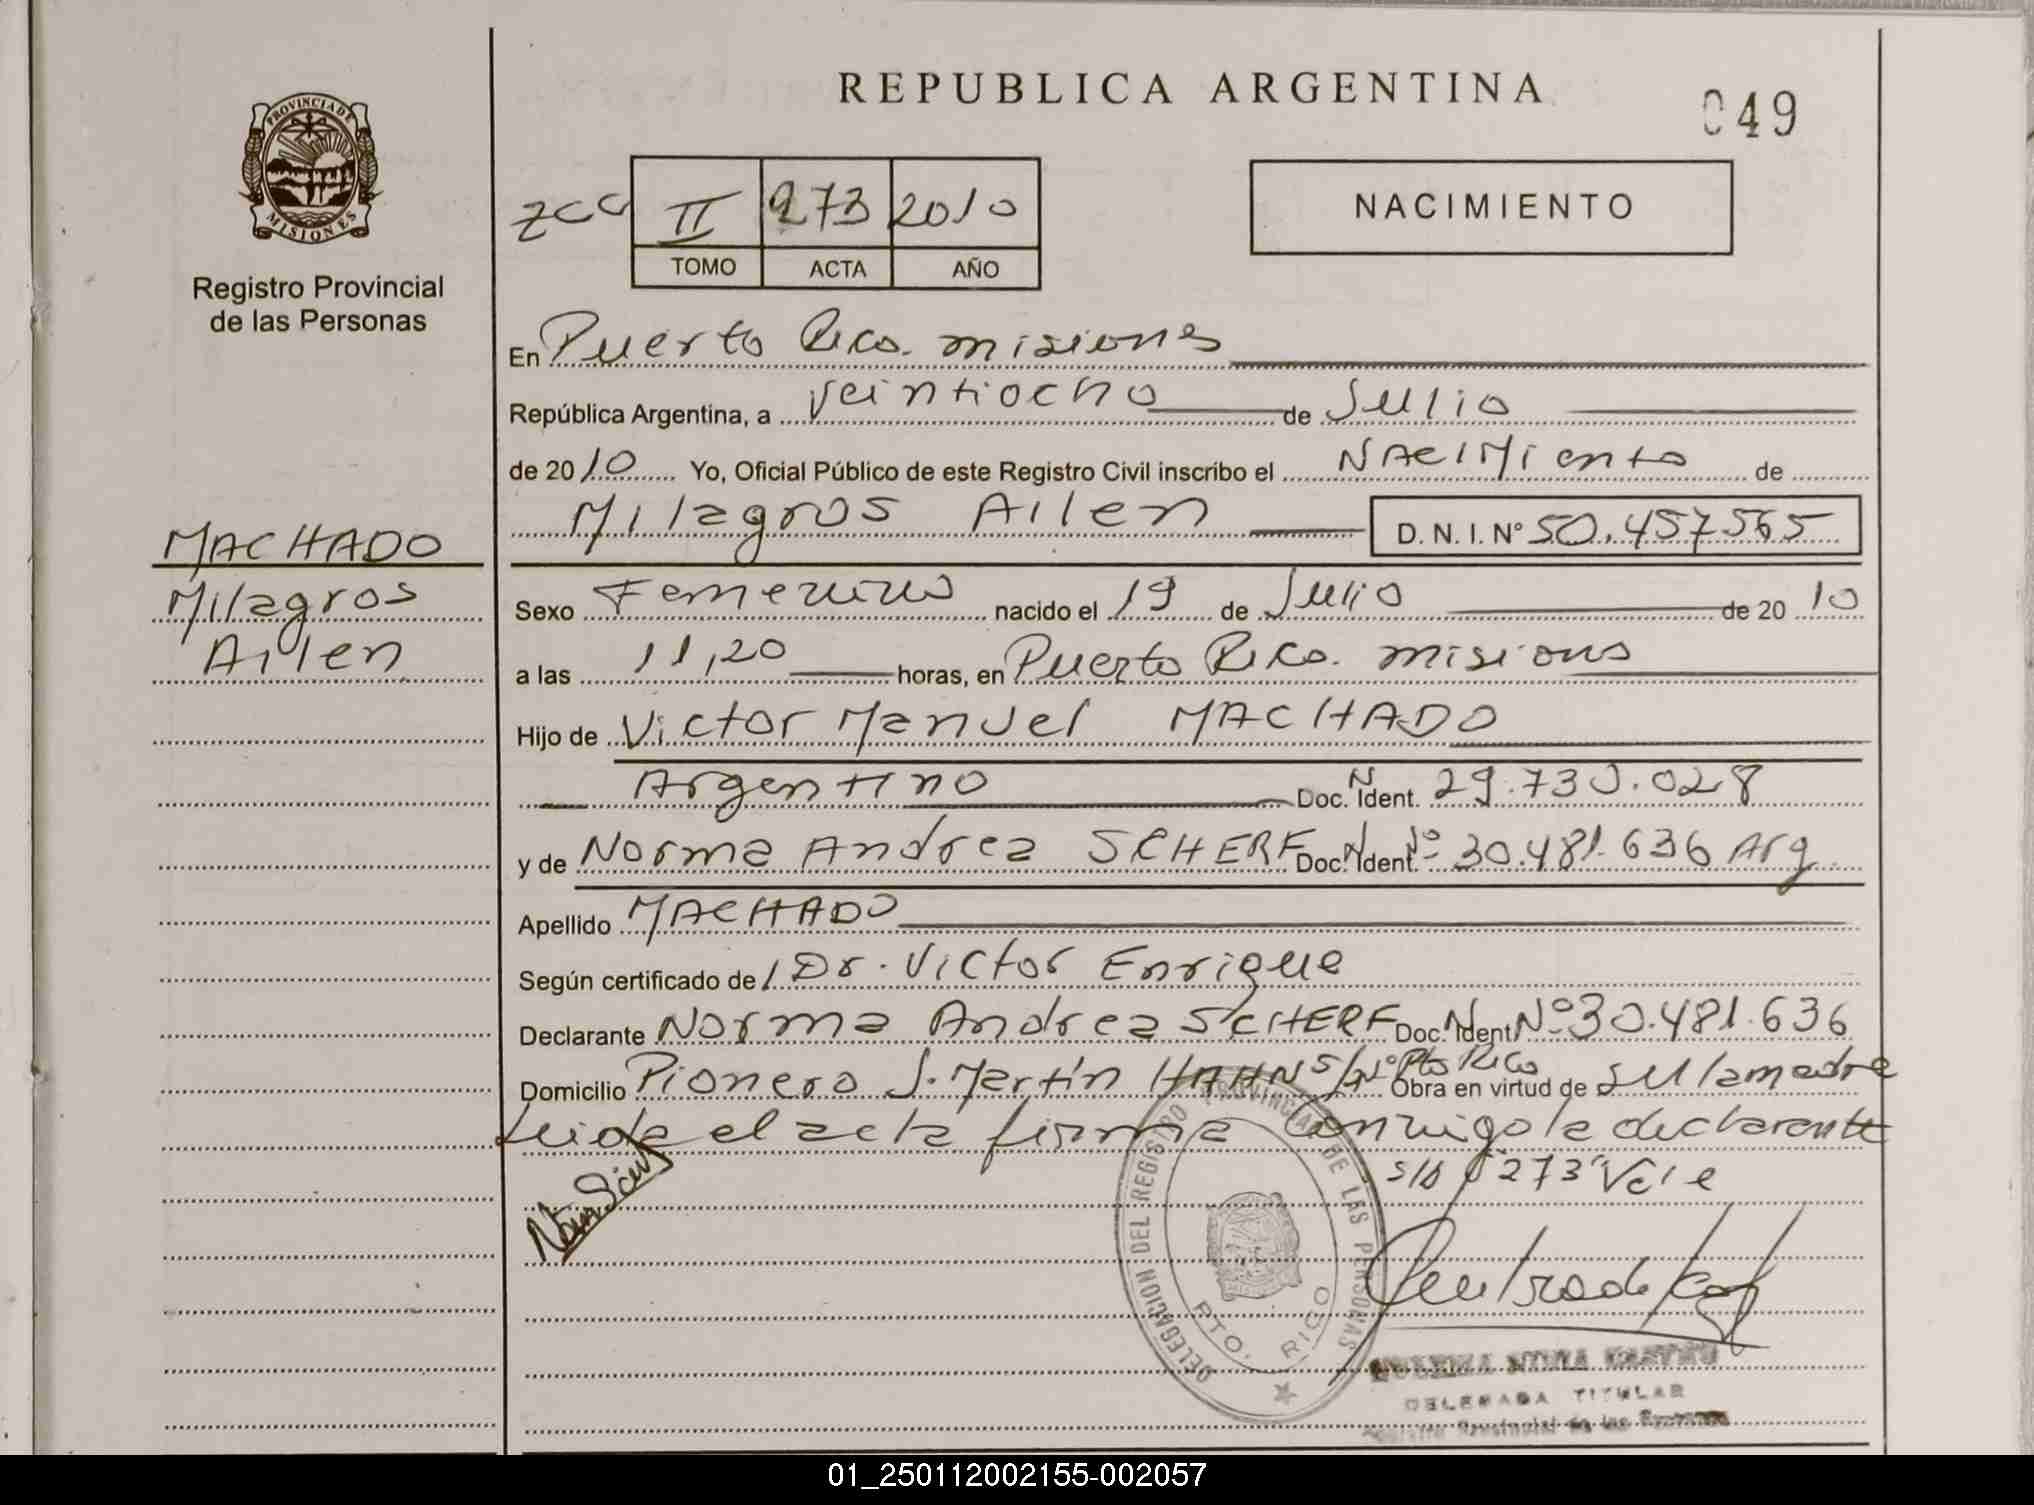 REPUBLICA ARGENTINA
049
PROVINCIA DE
MISIONES
Registro Provincial
de las Personas
II 273 2010
TOMO ACTA AÑO
NACIMIENTO
En Puerto Rico. misiones
República Argentina, a veintiocho de Julio
de 2010 Yo, Oficial Público de este Registro Civil inscribo el NAcIMiento de
Milagros Ailen D. N. I. N° 50.457565
MACHADO
Milagros
Ailen
Sexo Femenino nacido el 19 de Julio de 20 10
a las 11,20 horas, en Puerto Rico. misiones
Hijo de Victor Manuel MACHADO
Argentino Doc. N Ident. 29.730.028
y de Norma Andrea SCHERF Doc. N Ident. N° 30.481.636 Arg
Apellido MACHADO
Según certificado de Dr. Victor Enrique
Declarante Norma Andrea SCHERF Doc. N Ident N° 30.481.636
Domicilio Pionero J. Martín HAHN S/N° Pto Rico Obra en virtud de ser la madre
Leida el acta firma conmigo la declarante
s/b 273 Vale
DELEGACION DEL REGISTRO PROVINCIAL DE LAS PERSONAS
PTO. RICO
DELEGADA TITULAR
Registro Provincial de las Personas
01_250112002155-002057